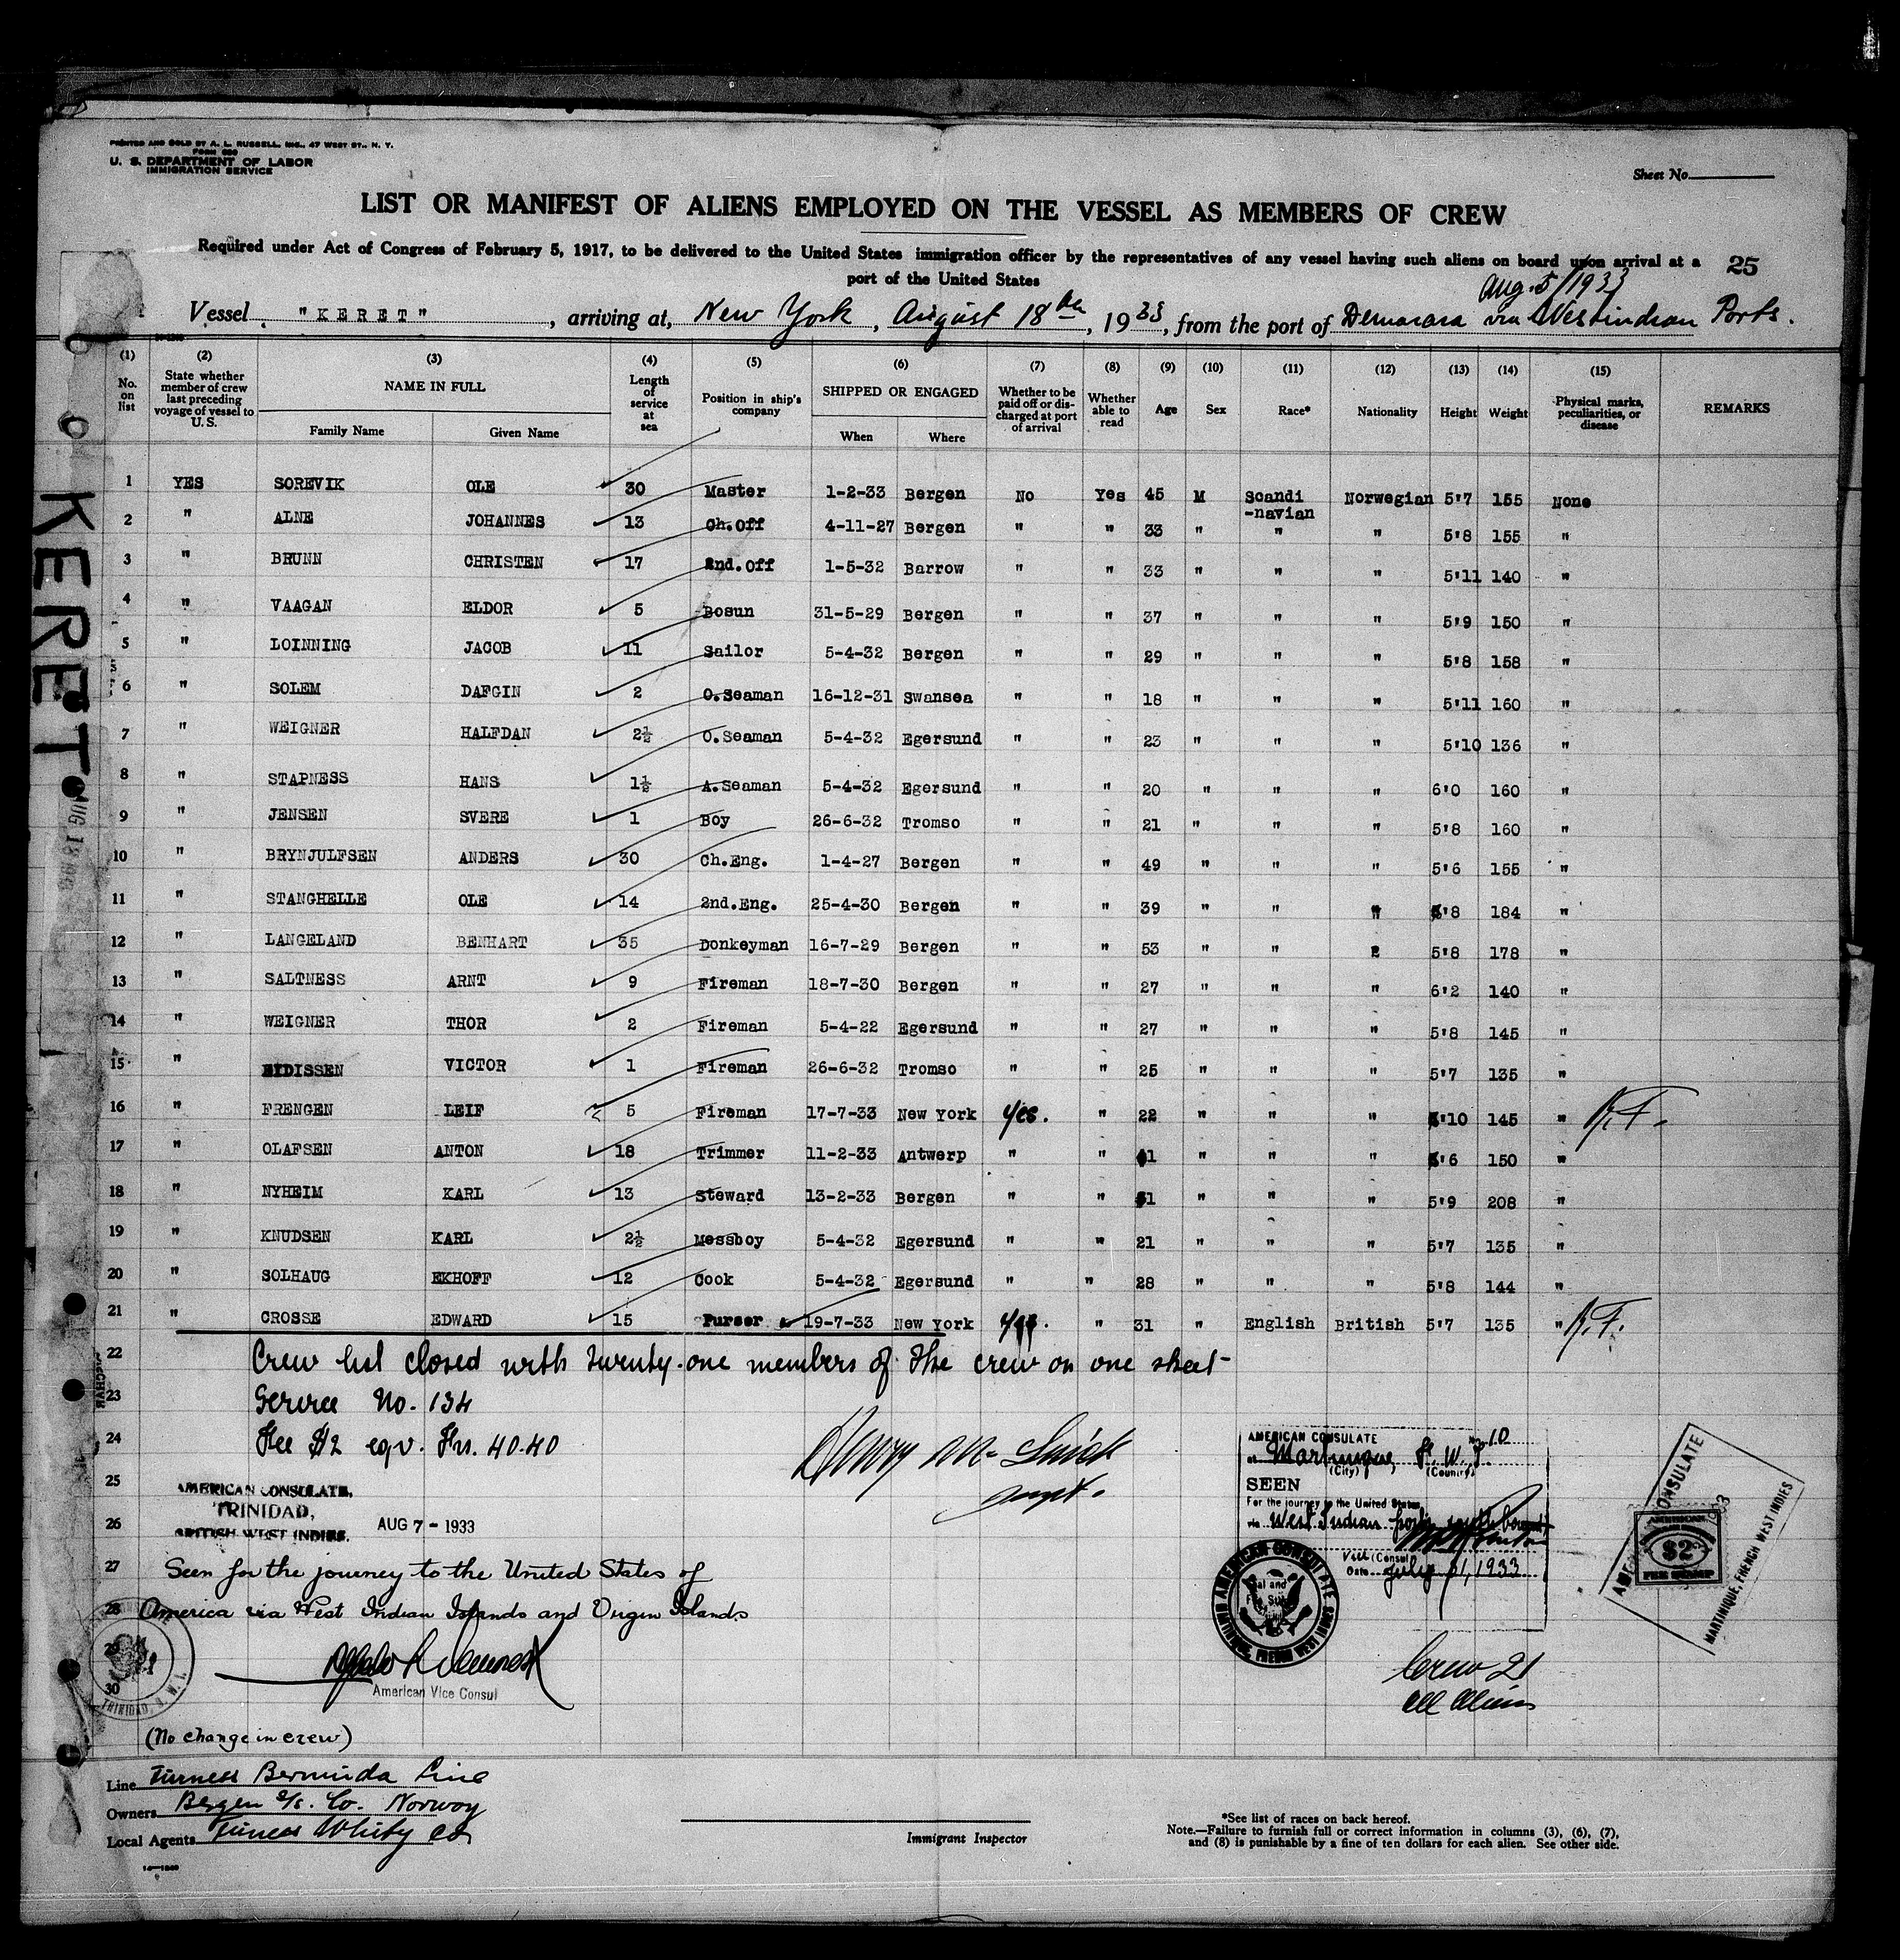 PRINTED AND SOLD BY A. L. RUSSELL, INC., 47 WEST ST., N. Y.
FORM 680
U. S. DEPARTMENT OF LABOR
IMMIGRATION SERVICE
Sheet No.
LIST OR MANIFEST OF ALIENS EMPLOYED ON THE VESSEL AS MEMBERS OF CREW
Required under Act of Congress of February 5, 1917, to be delivered to the United States immigration officer by the representatives of any vessel having such aliens on board upon arrival at a
port of the United States
25
Aug. 5/1933
Vessel "KERET", arriving at, New York, August 18th, 1933, from the port of Demarara via Westindian Ports.
(1) (2) (3) (4) (5) (6) (7) (8) (9) (10) (11) (12) (13) (14) (15)
No. on list
State whether member of crew last preceding voyage of vessel to U.S.
NAME IN FULL
Family Name Given Name
Length of service at sea
Position in ship's company
SHIPPED OR ENGAGED
When Where
Whether to be paid off or discharged at port of arrival
Whether able to read
Age Sex Race* Nationality Height Weight
Physical marks, peculiarities, or disease
REMARKS
1 YES SOREVIK OLE 30 Master 1-2-33 Bergen No Yes 45 M Scandi-navian Norwegian 5'7 155 None
2 " ALNE JOHANNES 13 Ch.Off 4-11-27 Bergen " " 33 " " " 5'8 155 "
3 " BRUNN CHRISTEN 17 2nd.Off 1-5-32 Barrow " " 33 " " " 5'11 140 "
4 " VAAGAN ELDOR 5 Bosun 31-5-29 Bergen " " 37 " " " 5'9 150 "
5 " LOINNING JACOB 11 Sailor 5-4-32 Bergen " " 29 " " " 5'8 158 "
6 " SOLEM DAFGIN 2 O.Seaman 16-12-31 Swansea " " 18 " " " 5'11 160 "
7 " WEIGNER HALFDAN 2½ O.Seaman 5-4-32 Egersund " " 23 " " " 5'10 136 "
8 " STAPNESS HANS 1½ A.Seaman 5-4-32 Egersund " " 20 " " " 6'0 160 "
9 " JENSEN SVERE 1 Boy 26-6-32 Tromso " " 21 " " " 5'8 160 "
10 " BRYNJULFSEN ANDERS 30 Ch.Eng. 1-4-27 Bergen " " 49 " " " 5'6 155 "
11 " STANGHELLE OLE 14 2nd.Eng. 25-4-30 Bergen " " 39 " " " 5'8 184 "
12 " LANGELAND BENHART 35 Donkeyman 16-7-29 Bergen " " 53 " " " 5'8 178 "
13 " SALTNESS ARNT 9 Fireman 18-7-30 Bergen " " 27 " " " 6'2 140 "
14 " WEIGNER THOR 2 Fireman 5-4-22 Egersund " " 27 " " " 5'8 145 "
15 " EIDISSEN VICTOR 1 Fireman 26-6-32 Tromso " " 25 " " " 5'7 135 "
16 " FRENGEN LEIF 5 Fireman 17-7-33 New York Yes. " 22 " " " 5'10 145 " R.F.
17 " OLAFSEN ANTON 18 Trimmer 11-2-33 Antwerp " " 41 " " " 5'6 150 "
18 " NYHEIM KARL 13 Steward 13-2-33 Bergen " " 31 " " " 5'9 208 "
19 " KNUDSEN KARL 2½ Messboy 5-4-32 Egersund " " 21 " " " 5'7 135 "
20 " SOLHAUG EKHOFF 12 Cook 5-4-32 Egersund " " 28 " " " 5'8 144 "
21 " CROSSE EDWARD 15 Purser 19-7-33 New York Yes. " 31 " English British 5'7 135 " R.F.
22 Crew list closed with twenty-one members of the crew on one sheet
23 Service No. 134
24 Fee $2 eqv. Frs. 40.40
25
26
27
28
29
30
AMERICAN CONSULATE,
TRINIDAD,
BRITISH WEST INDIES.
AUG 7 - 1933
Seen for the journey to the United States of
America via West Indian Islands and Virgin Islands
American Vice Consul
TRINIDAD, B.W.I.
(No change in crew)
AMERICAN CONSULATE
at Martinique, F. W. I.
(City) (Country)
SEEN
For the journey to the United States
via West Indian ports southbound
Vice Consul
Date July 31, 1933
AMERICAN CONSULATE
MARTINIQUE, FRENCH WEST INDIES
AMERICAN CONSULATE
MARTINIQUE, FRENCH WEST INDIES
AMERICAN
$2
FEE STAMP
Crew 21
all Aliens
Line Furness Bermuda Line
Owners Bergen S/S. Co. Norway
Local Agents Furness Withy Co
Immigrant Inspector
*See list of races on back hereof.
Note.—Failure to furnish full or correct information in columns (3), (6), (7),
and (8) is punishable by a fine of ten dollars for each alien. See other side.
14—1240
KERET
AUG 18